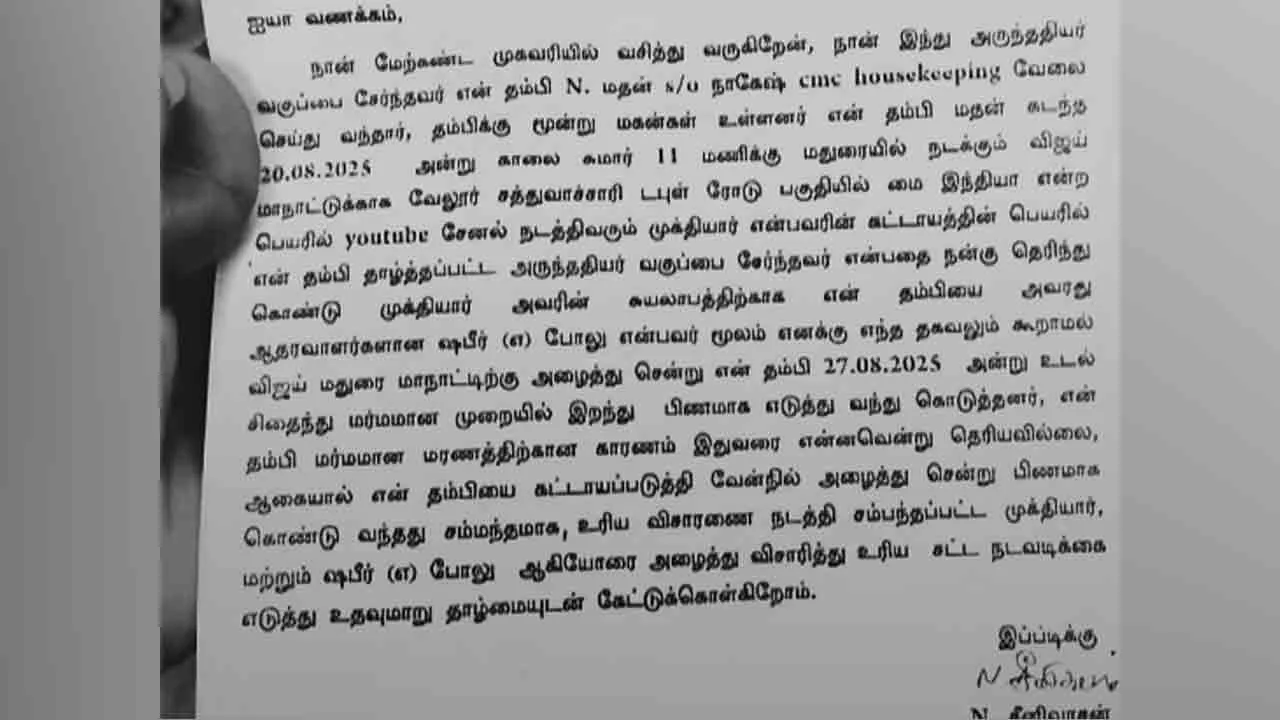 ஐயா வணக்கம்,
நான் மேற்கண்ட முகவரியில் வசித்து வருகிறேன், நான் இந்து அருந்ததியர்
வகுப்பை சேர்ந்தவர் என் தம்பி N. மதன் s/o நாகேஷ் cmc housekeeping வேலை
செய்து வந்தார், தம்பிக்கு மூன்று மகன்கள் உள்ளனர் என் தம்பி மதன் கடந்த
20.08.2025 அன்று காலை சுமார் 11 மணிக்கு மதுரையில் நடக்கும் விஜய்
மாநாட்டுக்காக வேலூர் சத்துவாச்சாரி டபுள் ரோடு பகுதியில் மை இந்தியா என்ற
பெயரில் youtube சேனல் நடத்திவரும் முக்தியார் என்பவரின் கட்டாயத்தின் பெயரில்
என் தம்பி தாழ்த்தப்பட்ட அருந்ததியர் வகுப்பை சேர்ந்தவர் என்பதை நன்கு தெரிந்து
கொண்டு முக்தியார் அவரின் சுயலாபத்திற்காக என் தம்பியை அவரது
ஆதரவாளர்களான ஷபீர் (எ) போலு என்பவர் மூலம் எனக்கு எந்த தகவலும் கூறாமல்
விஜய் மதுரை மாநாட்டிற்கு அழைத்து சென்று என் தம்பி 27.08.2025 அன்று உடல்
சிதைந்து மர்மமான முறையில் இறந்து பிணமாக எடுத்து வந்து கொடுத்தனர், என்
தம்பி மர்மமான மரணத்திற்கான காரணம் இதுவரை என்னவென்று தெரியவில்லை,
ஆகையால் என் தம்பியை கட்டாயப்படுத்தி வேன்நில் அழைத்து சென்று பிணமாக
கொண்டு வந்தது சம்மந்தமாக, உரிய விசாரணை நடத்தி சம்பந்தப்பட்ட முக்தியார்,
மற்றும் ஷபீர் (எ) போலு ஆகியோரை அழைத்து விசாரித்து உரிய சட்ட நடவடிக்கை
எடுத்து உதவுமாறு தாழ்மையுடன் கேட்டுக்கொள்கிறோம்.
இப்படிக்கு
N
N. சீனிவாசன்